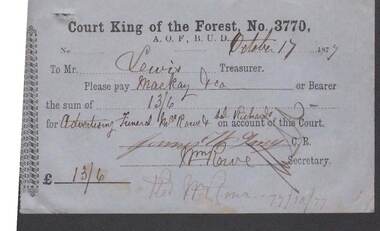 Court King of the Forest, No. 3770,
A. O. F., B. U. D.
No October 17 1877
To Mr. Lewis Treasurer.
Please pay Mackay & Co or Bearer
the sum of 13/6
for Advertising Funeral Rowe & Richards on account of this Court.
C. R.
Wm Rowe Secretary.
£ 13/6